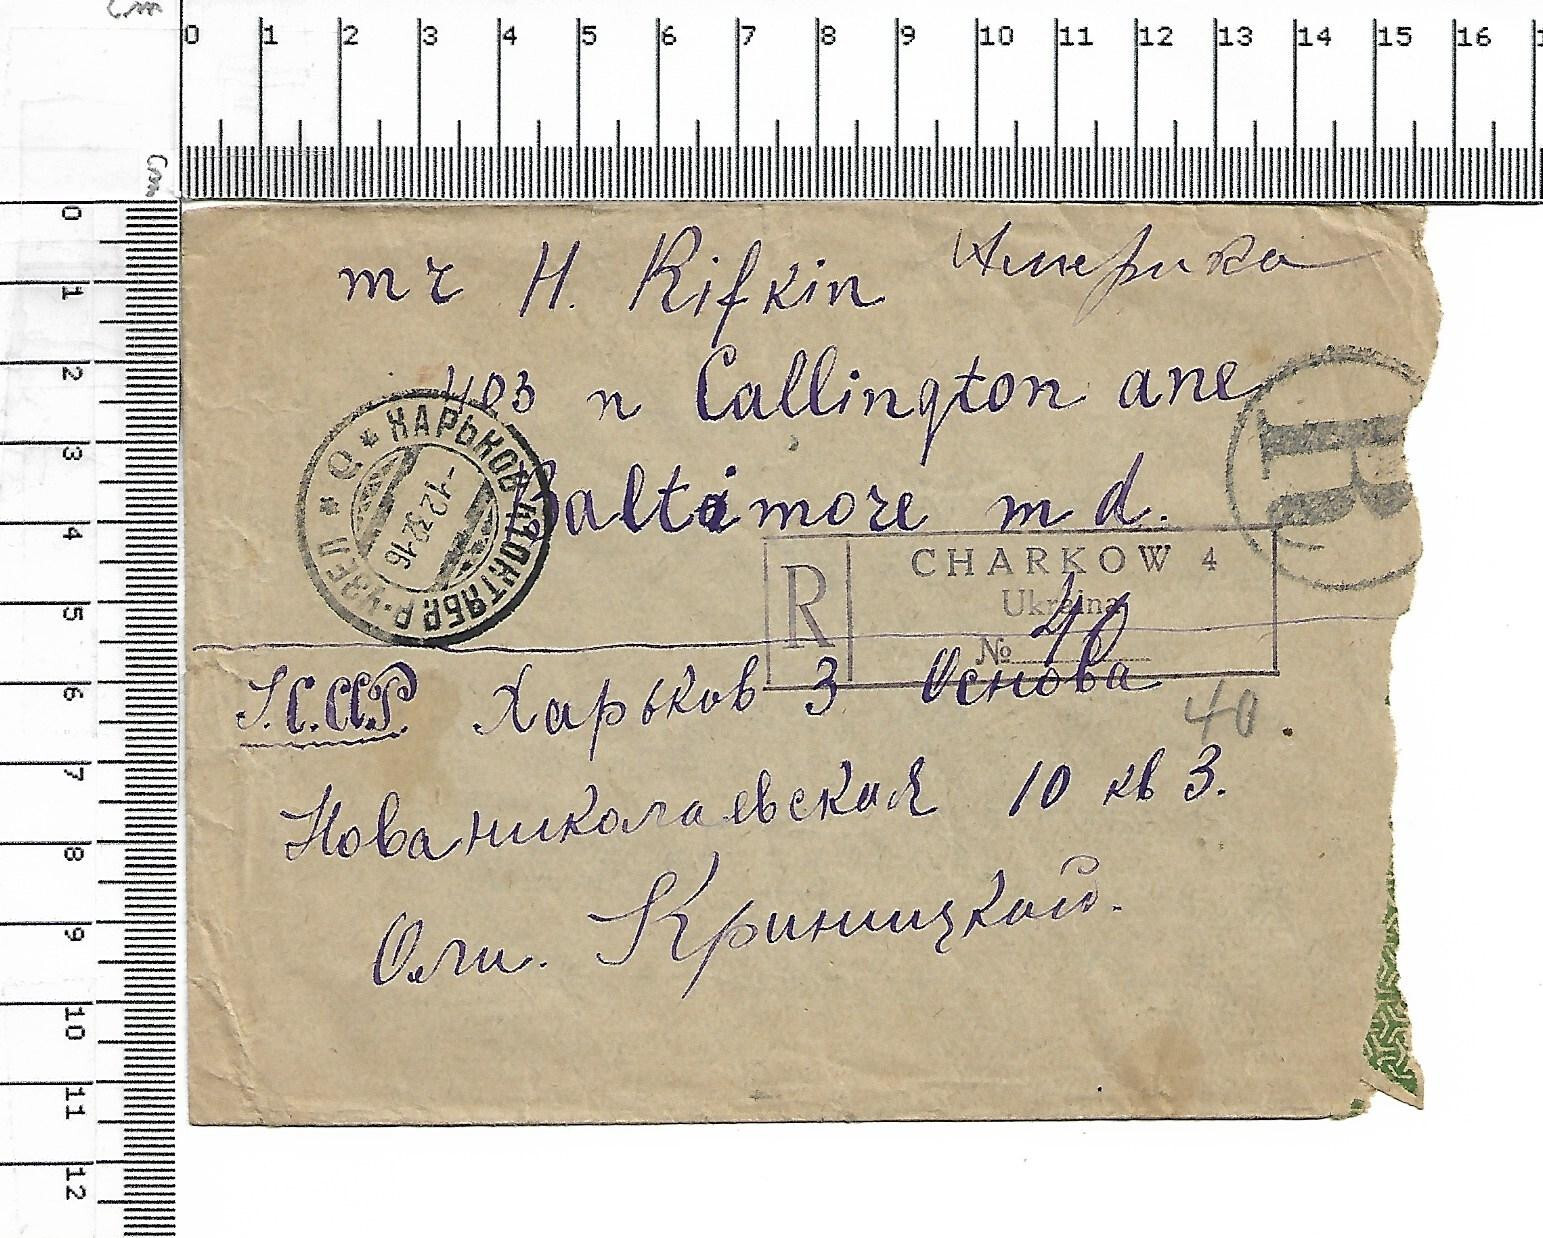 cm
0 1 2 3 4 5 6 7 8 9 10 11 12 13 14 15 16
cm
0 1 2 3 4 5 6 7 8 9 10 11 12
mr H. Rifkin Америка
403 n Callington ane
Baltimore md.
R
* ХАРЬКОВ
-1.12.32.16
CHARKOW 4
Ukraina
R
№ 40
С.С.С.Р. Харьков 3 Основа
40
Нованиколаевская 10 кв 3.
Оли. Криницкой.